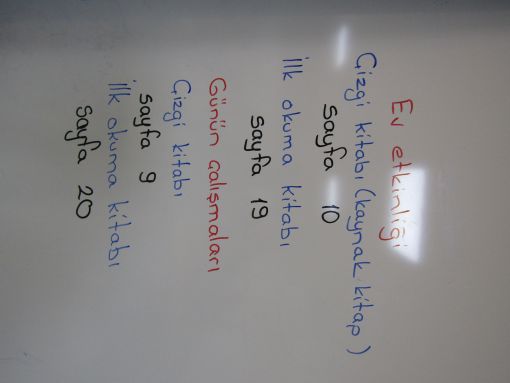 Ev etkinliği
Çizgi kitabı (kaynak kitap)
sayfa 10
İlk okuma kitabı
sayfa 19
Günün çalışmaları
Çizgi kitabı
sayfa 9
İlk okuma kitabı
sayfa 20